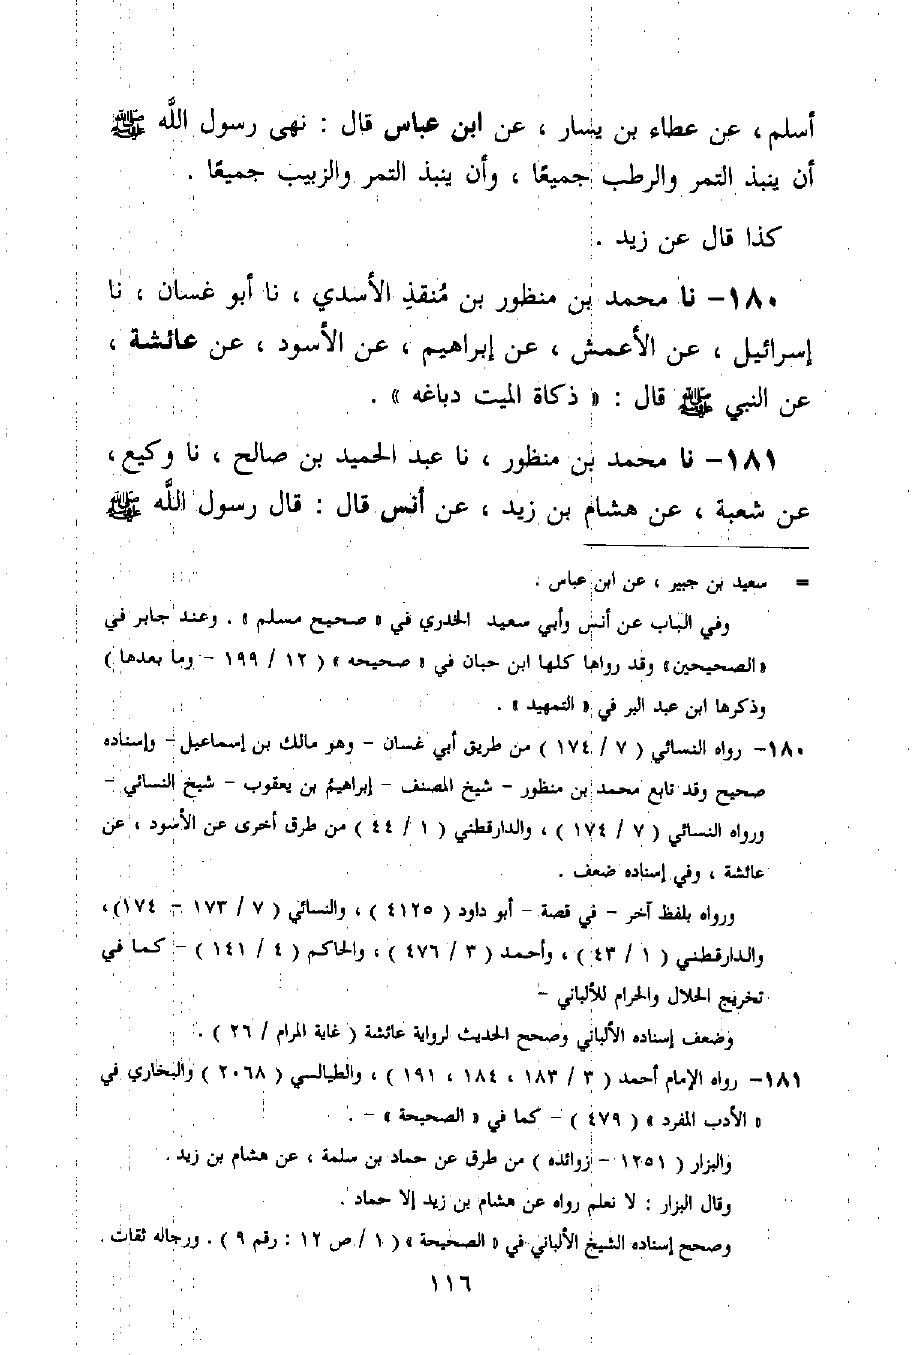 أسلم ، عن عطاء بن يسار ، عن ابن عباس قال : نهى رسول اللَّه ﷺ
أن ينبذ التمر والرطب جميعًا ، وأن ينبذ التمر والزبيب جميعًا .
كذا قال عن زيد .
١٨٠- نا محمد بن منظور بن مُنقذِ الأسدي ، نا أبو غسان ، نا
إسرائيل ، عن الأعمش ، عن إبراهيم ، عن الأسود ، عن عائشة ،
عن النبي ﷺ قال : « ذكاة الميت دباغه » .
١٨١- نا محمد بن منظور ، نا عبد الحميد بن صالح ، نا وكيع ،
عن شعبة ، عن هشام بن زيد ، عن أنس قال : قال رسول اللَّه ﷺ
= سعيد بن جبير ، عن ابن عباس .
وفي الباب عن أنس وأبي سعيد الخدري في « صحيح مسلم » . وعند جابر في
«الصحيحين» وقد رواها كلها ابن حبان في « صحيحه » ( ١٢ / ١٩٩ - وما بعدها )
وذكرها ابن عبد البر في « التمهيد » .
١٨٠- رواه النسائي ( ٧ / ١٧٤ ) من طريق أبي غسان - وهو مالك بن إسماعيل - وإسناده
صحيح وقد تابع محمد بن منظور - شيخ المصنف - إبراهيمُ بن يعقوب - شيخ النسائي -
ورواه النسائي ( ٧ / ١٧٤ ) ، والدارقطني ( ١ / ٤٤ ) من طرق أخرى عن الأسود ، عن
عائشة ، وفي إسناده ضعف .
ورواه بلفظ آخر - في قصة - أبو داود ( ٤١٢٥ ) ، والنسائي ( ٧ / ١٧٣ - ١٧٤)،
والدارقطني ( ١ / ٤٣ ) ، وأحمد ( ٣ / ٤٧٦ ) ، والحاكم ( ٤ / ١٤١ ) - كما في
تخريج الحلال والحرام للألباني -
وضعف إسناده الألباني وصحح الحديث لرواية عائشة ( غاية المرام / ٢٦ ) .
١٨١- رواه الإمام أحمد ( ٣ / ١٨٣ ، ١٨٤ ، ١٩١ ) ، والطيالسي ( ٢٠٦٨ ) والبخاري في
« الأدب المفرد » ( ٤٧٩ ) - كما في « الصحيحة » - .
والبزار ( ١٢٥١ - زوائده ) من طرق عن حماد بن سلمة ، عن هشام بن زيد .
وقال البزار : لا نعلم رواه عن هشام بن زيد إلا حماد .
وصحح إسناده الشيخ الألباني في « الصحيحة » ( ١ / ص ١٢ : رقم ٩ ) . ورجاله ثقات .
١١٦